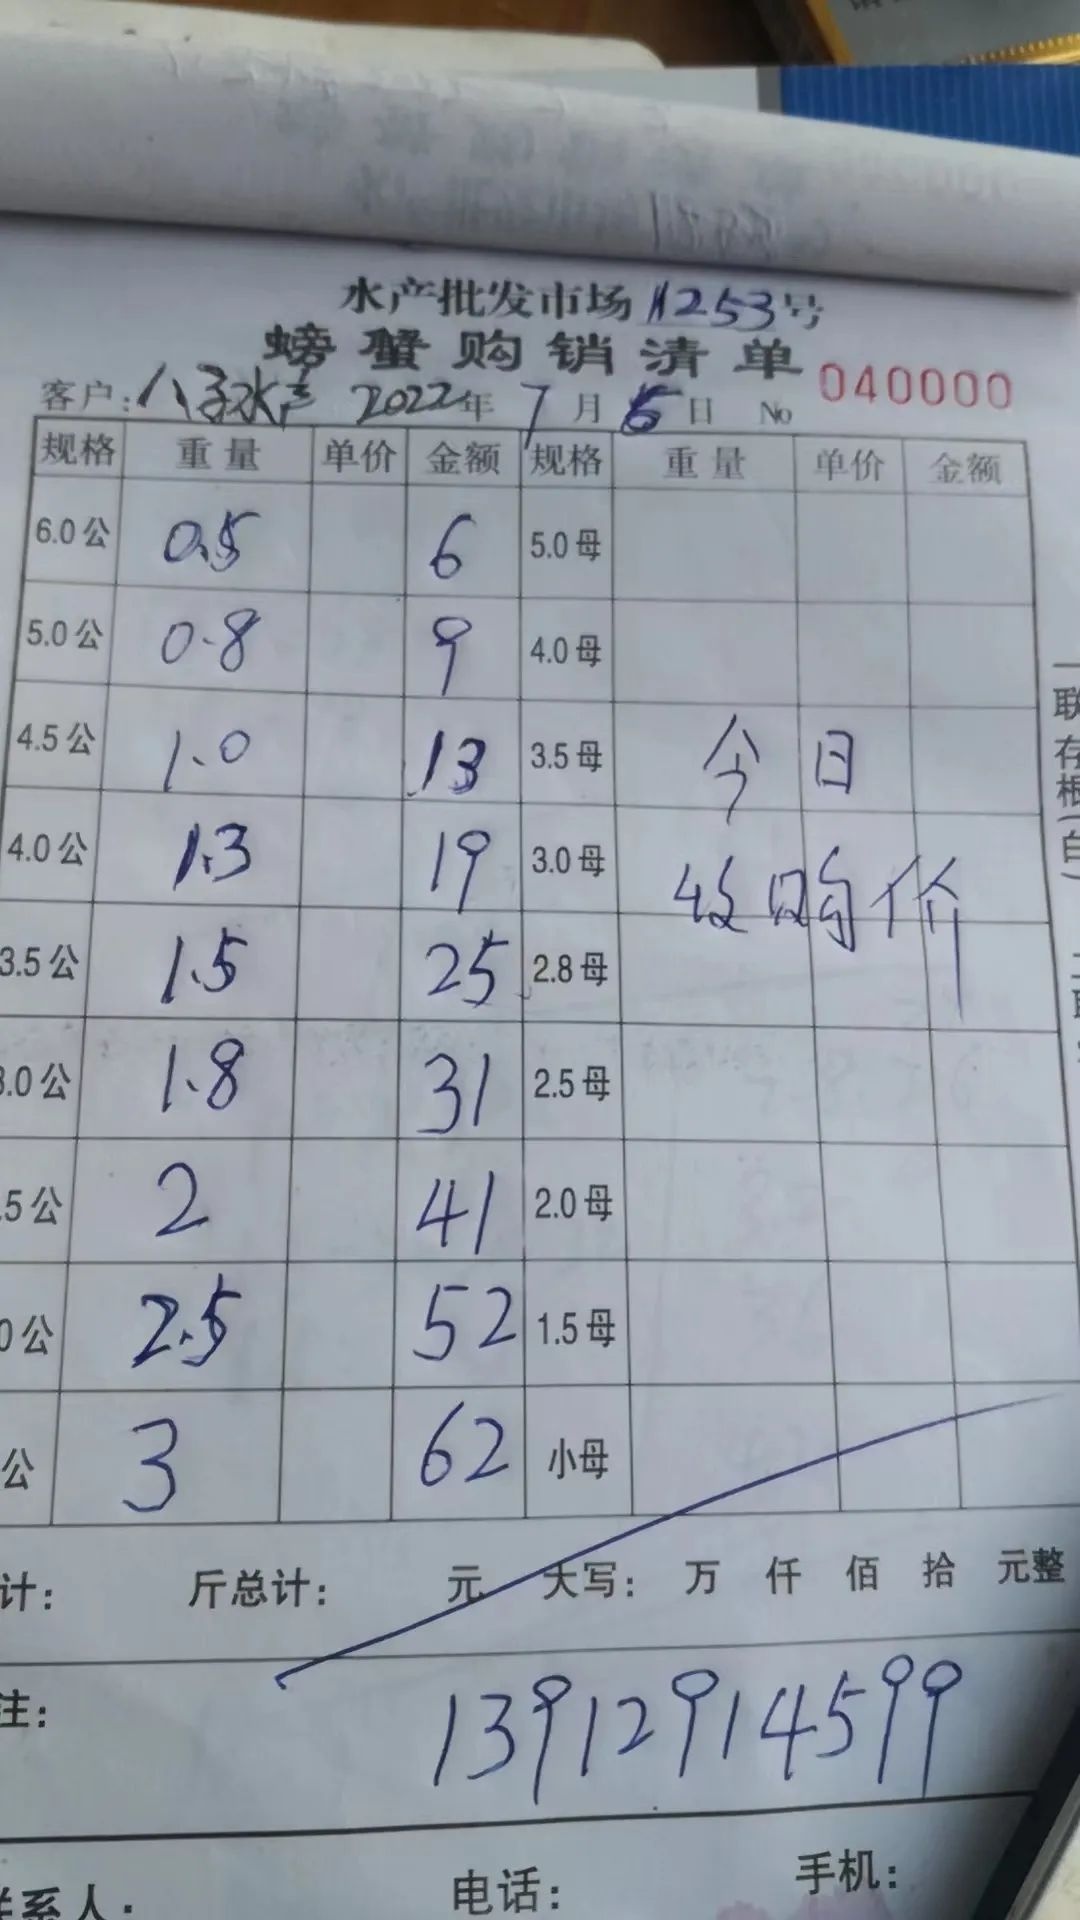 水产批发市场A253号
螃蟹购销清单
客户:八子水产 2022年7月6日 No 040000
规格 重量 单价 金额 规格 重量 单价 金额
6.0公 0.5 6 5.0母
5.0公 0.8 9 4.0母
4.5公 1.0 13 3.5母 今日
4.0公 1.3 19 3.0母 收购价
3.5公 1.5 25 2.8母
3.0公 1.8 31 2.5母
.5公 2 41 2.0母
0公 2.5 52 1.5母
公 3 62 小母
计: 斤总计: 元 大写: 万 仟 佰 拾 元整
注:
13912914599
联系人: 电话: 手机:
一联存根(白)